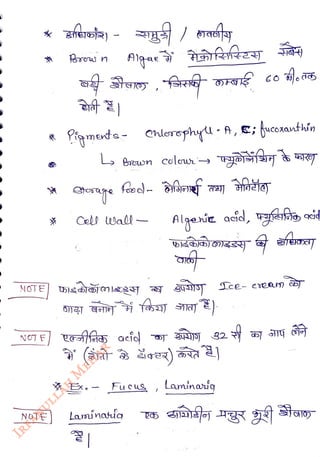 * अधिकांश - समुद्री / लवणीय
* Brown Algae में मैक्रोसिस्टिस सबसे
बड़ी शैवाल, जिसकी लम्बाई 60 मी० तक
होती है।
* Pigments - Chlorophyll - A, C, fucoxanthin
↳ Brown colour → फ्यूकोजैन्थिन के कारण
* Storage Food - लेमिनारिन तथा मेनिटोल
* Cell Wall - Algenic acid, फ्यूसिनिक acid
फाइकोकोलाइड्स की अधिकता
वाली
NOTE फाइकोकोलाइड्स का उपयोग Ice-cream को
गाढ़ा बनाने में किया जाता है।
NOTE एल्जीनिक acid का उपयोग 32 सी का नाप लेने
में (दाँतों के डॉक्टर) करते हैं।
* Ex. - Fucus, Laminaria
NOTE Laminaria एक आयोडीन प्रचुर भूरी शैवाल
है।